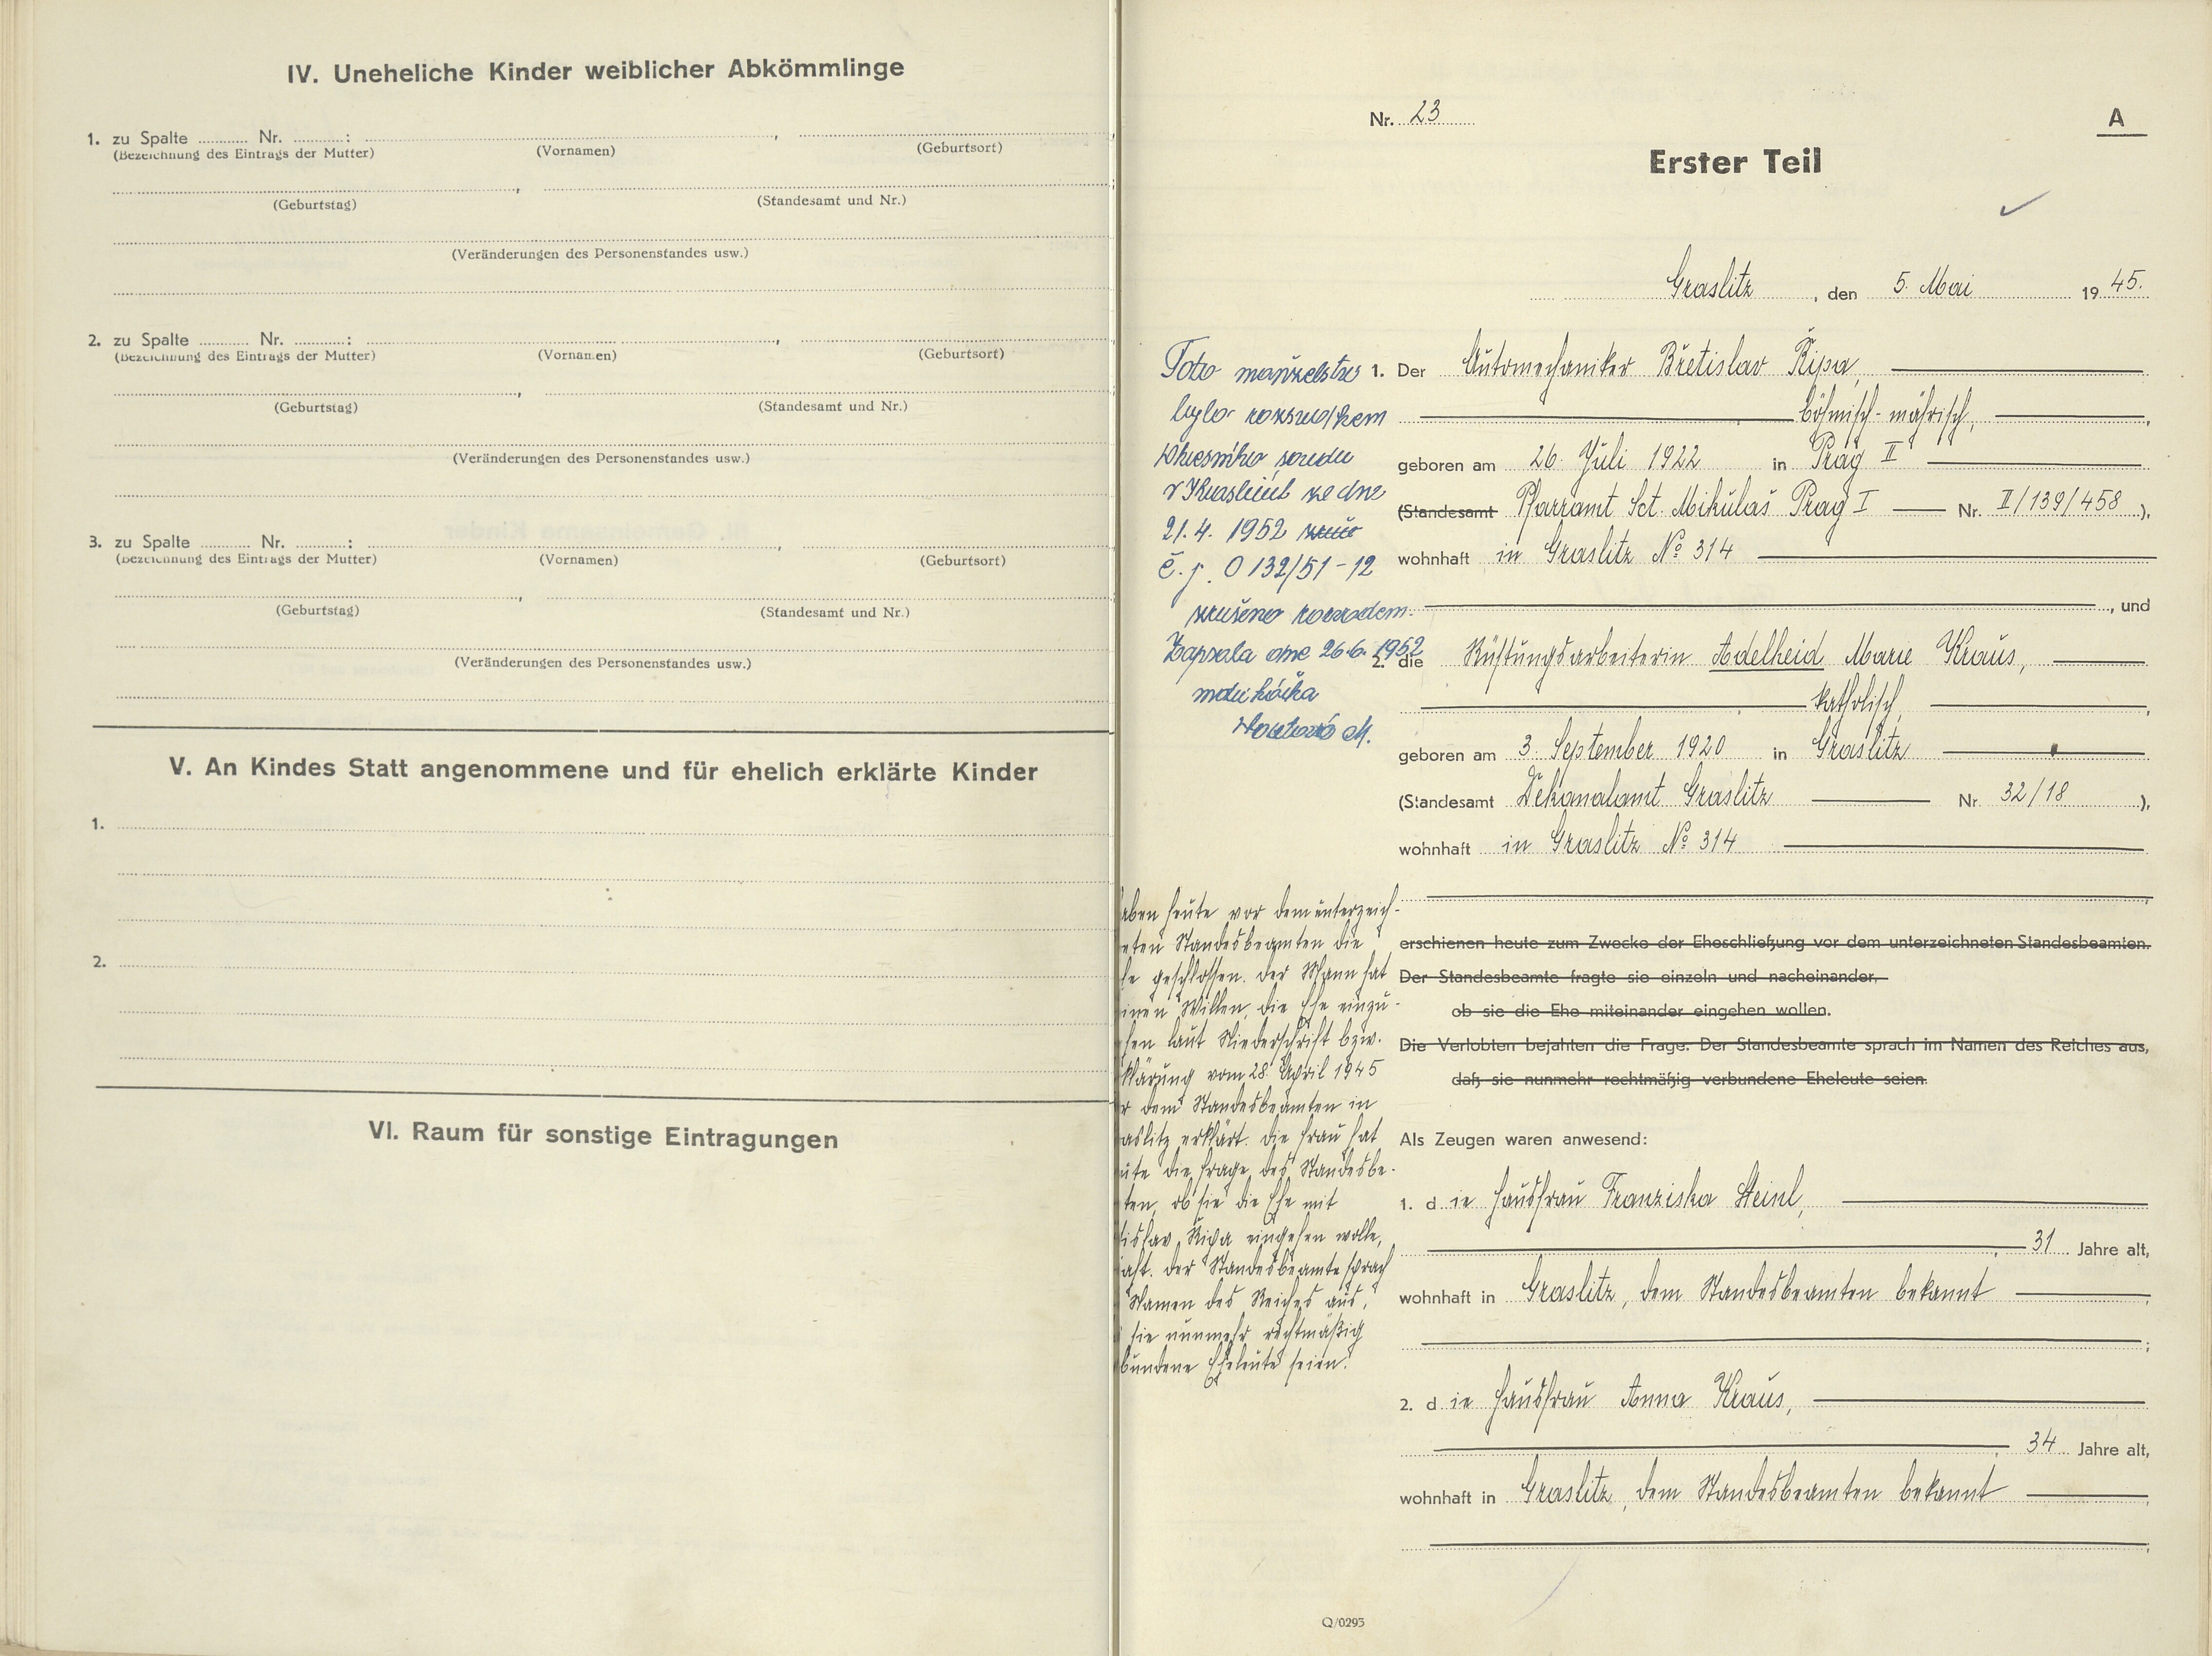 IV. Uneheliche Kinder weiblicher Abkömmlinge
1. zu Spalte ........... Nr. ...........: ,
(Bezeichnung des Eintrags der Mutter) (Vornamen) (Geburtsort)
,
(Geburtstag) (Standesamt und Nr.)
(Veränderungen des Personenstandes usw.)
2. zu Spalte ........... Nr. ...........: ,
(Bezeichnung des Eintrags der Mutter) (Vornamen) (Geburtsort)
,
(Geburtstag) (Standesamt und Nr.)
(Veränderungen des Personenstandes usw.)
3. zu Spalte ........... Nr. ...........: ,
(Bezeichnung des Eintrags der Mutter) (Vornamen) (Geburtsort)
,
(Geburtstag) (Standesamt und Nr.)
(Veränderungen des Personenstandes usw.)
V. An Kindes Statt angenommene und für ehelich erklärte Kinder
1.
2.
VI. Raum für sonstige Eintragungen
Nr. 23
A
Erster Teil
Graslitz, den 5. Mai 1945.
Toto manželstvo
bylo rozsudkem
okresního soudu
v Kraslicích ze dne
21.4. 1952
č. j. O 132/51-12
zrušeno rozvodem.
Zapsala dne 26.6. 1952
matrikářka
1. Der Automechaniker Břetislav Řípa,
böhmisch-mährisch,
geboren am 26. Juli 1922 in Prag II
(Standesamt Pfarramt Sct. Mikulaš Prag I Nr. II/139/458 ),
wohnhaft in Graslitz No 314
, und
2. die Rüstungsarbeiterin Adelheid Marie Kraus,
katholisch,
geboren am 3. September 1920 in Graslitz
(Standesamt Dekanalamt Graslitz Nr. 32/18 ),
wohnhaft in Graslitz No 314
aben heute vor dem unterzeich-
eten Standesbeamten die
he geschlossen. Der Mann hat
inen Willen, die Ehe einzu-
hen laut Niederschrift bzw.
klärung vom 28. April 1945
r dem Standesbeamten in
aslitz erklärt. Die Frau hat
ute die Frage des Standesbe-
ten, ob sie die Ehe mit
tislav Řípa eingehen wolle,
aht. Der Standesbeamte sprach
Namen des Reiches aus,
sie nunmehr rechtmäßig
bundene Eheleute seien.
erschienen heute zum Zwecke der Eheschließung vor dem unterzeichneten Standesbeamten.
Der Standesbeamte fragte sie einzeln und nacheinander,
ob sie die Ehe miteinander eingehen wollen.
Die Verlobten bejahten die Frage. Der Standesbeamte sprach im Namen des Reiches aus,
daß sie nunmehr rechtmäßig verbundene Eheleute seien.
Als Zeugen waren anwesend:
1. die Hausfrau Franziska Steinl,
31 Jahre alt,
wohnhaft in Graslitz, dem Standesbeamten bekannt
;
2. die Hausfrau Anna Kraus,
34 Jahre alt,
wohnhaft in Graslitz, dem Standesbeamten bekannt
Q/0293